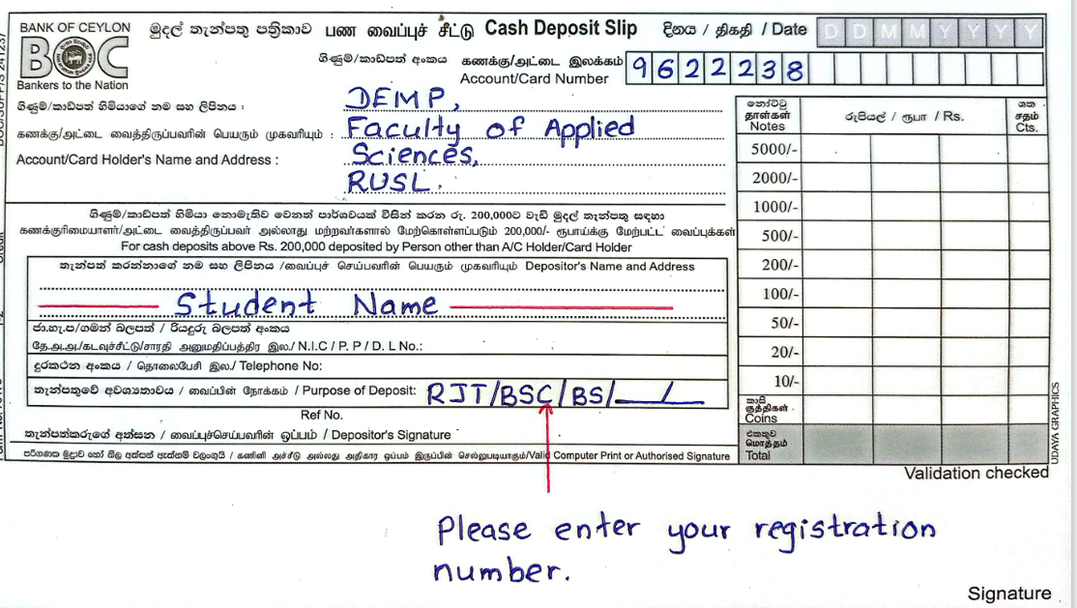 BANK OF CEYLON
BOC
Bankers to the Nation
මුදල් තැන්පතු පත්‍රිකාව பண வைப்புச் சீட்டு Cash Deposit Slip
දිනය / திகதி / Date D D M M Y Y Y Y
ගිණුම්/කාඩ්පත් අංකය கணக்கு/அட்டை இலக்கம்
Account/Card Number 9622238
ගිණුම්/කාඩ්පත් හිමියාගේ නම සහ ලිපිනය :
கணக்கு/அட்டை வைத்திருப்பவரின் பெயரும் முகவரியும் :
Account/Card Holder's Name and Address :
DEMP,
Faculty of Applied
Sciences,
RUSL.
ගිණුම්/කාඩ්පත් හිමියා නොමැතිව වෙනත් පාර්ශවයක් විසින් කරන රු. 200,000ට වැඩි මුදල් තැන්පතු සඳහා
கணக்குரிமையாளர்/அட்டை வைத்திருப்பவர் அல்லாது மற்றவர்களால் மேற்கொள்ளப்படும் 200,000/- ரூபாய்க்கு மேற்பட்ட வைப்புக்கள்
For cash deposits above Rs. 200,000 deposited by Person other than A/C Holder/Card Holder
තැන්පත් කරන්නාගේ නම සහ ලිපිනය /வைப்புச் செய்பவரின் பெயரும் முகவரியும் Depositor's Name and Address
Student Name
ජා.හැ.ප/ගමන් බලපත් / රියදුරු බලපත් අංකය
தே.அ.அ./கடவுச்சீட்டு/சாரதி அனுமதிப்பத்திர இல./ N.I.C / P. P / D. L No.:
දුරකථන අංකය / தொலைபேசி இல./ Telephone No:
තැන්පතුවේ අවශ්‍යතාවය / வைப்பின் நோக்கம் / Purpose of Deposit: RJT/BSC/BS/__/
Ref No.
තැන්පත්කරුගේ අත්සන / வைப்புச்செய்பவரின் ஒப்பம் / Depositor's Signature
පරිගණක මුද්‍රාව හෝ නිල අත්සන් ඇත්නම් වලංගුයි / கணினி அச்சீடு அல்லது அதிகார ஒப்பம் இருப்பின் செல்லுபடியாகும்/Valid Computer Print or Authorised Signature
නෝට්ටු
தாள்கள்
Notes
රුපියල් / ரூபா / Rs.
ශත
சதம்
Cts.
5000/-
2000/-
1000/-
500/-
200/-
100/-
50/-
20/-
10/-
කාසි
குத்திகள்
Coins
එකතුව
மொத்தம்
Total
UDAYA GRAPHICS
Validation checked
Please enter your registration
number.
Signature